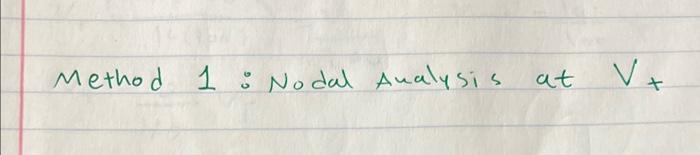 Method 1 : Nodal Analysis at V+